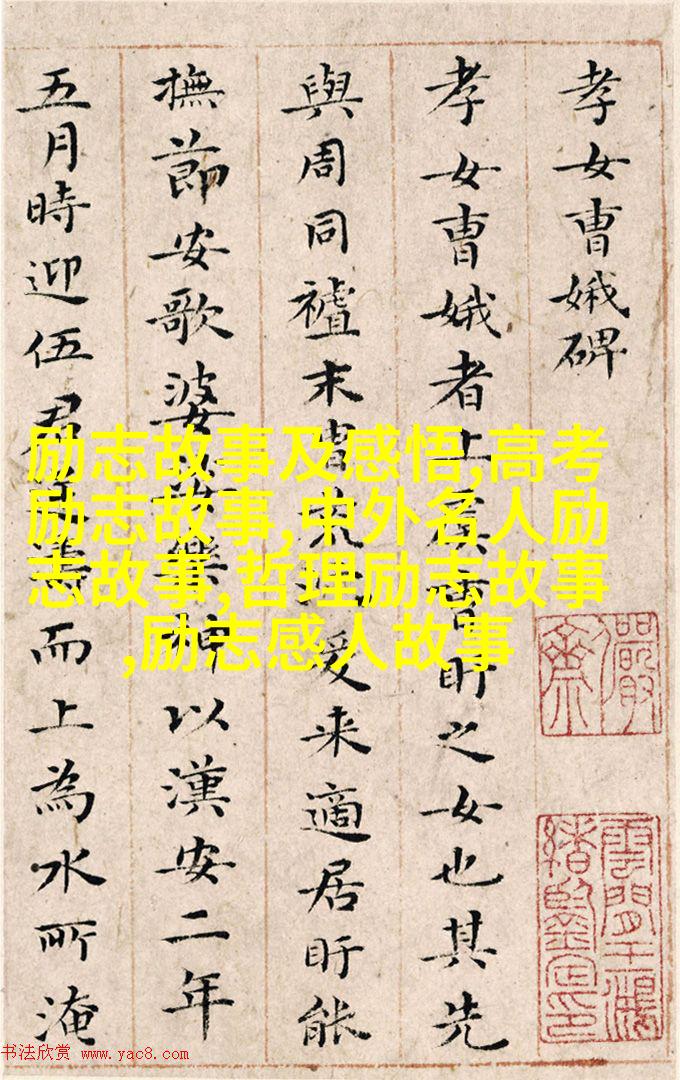 孝女曹娥碑
孝女曹娥者上虞曹盱之女也其先
與周同禮末胄荒爰来適居盱能
撫節安歌婆娑樂神以漢安二年
五月時迎伍君逆濤而上為水所淹
励志故事及感悟,高考
励志故事,中外名人励
志故事,哲理励志故事
,励志感人故事
儼齋
雲間王鴻
緒鑒定印
书法欣赏 www.yac8.com